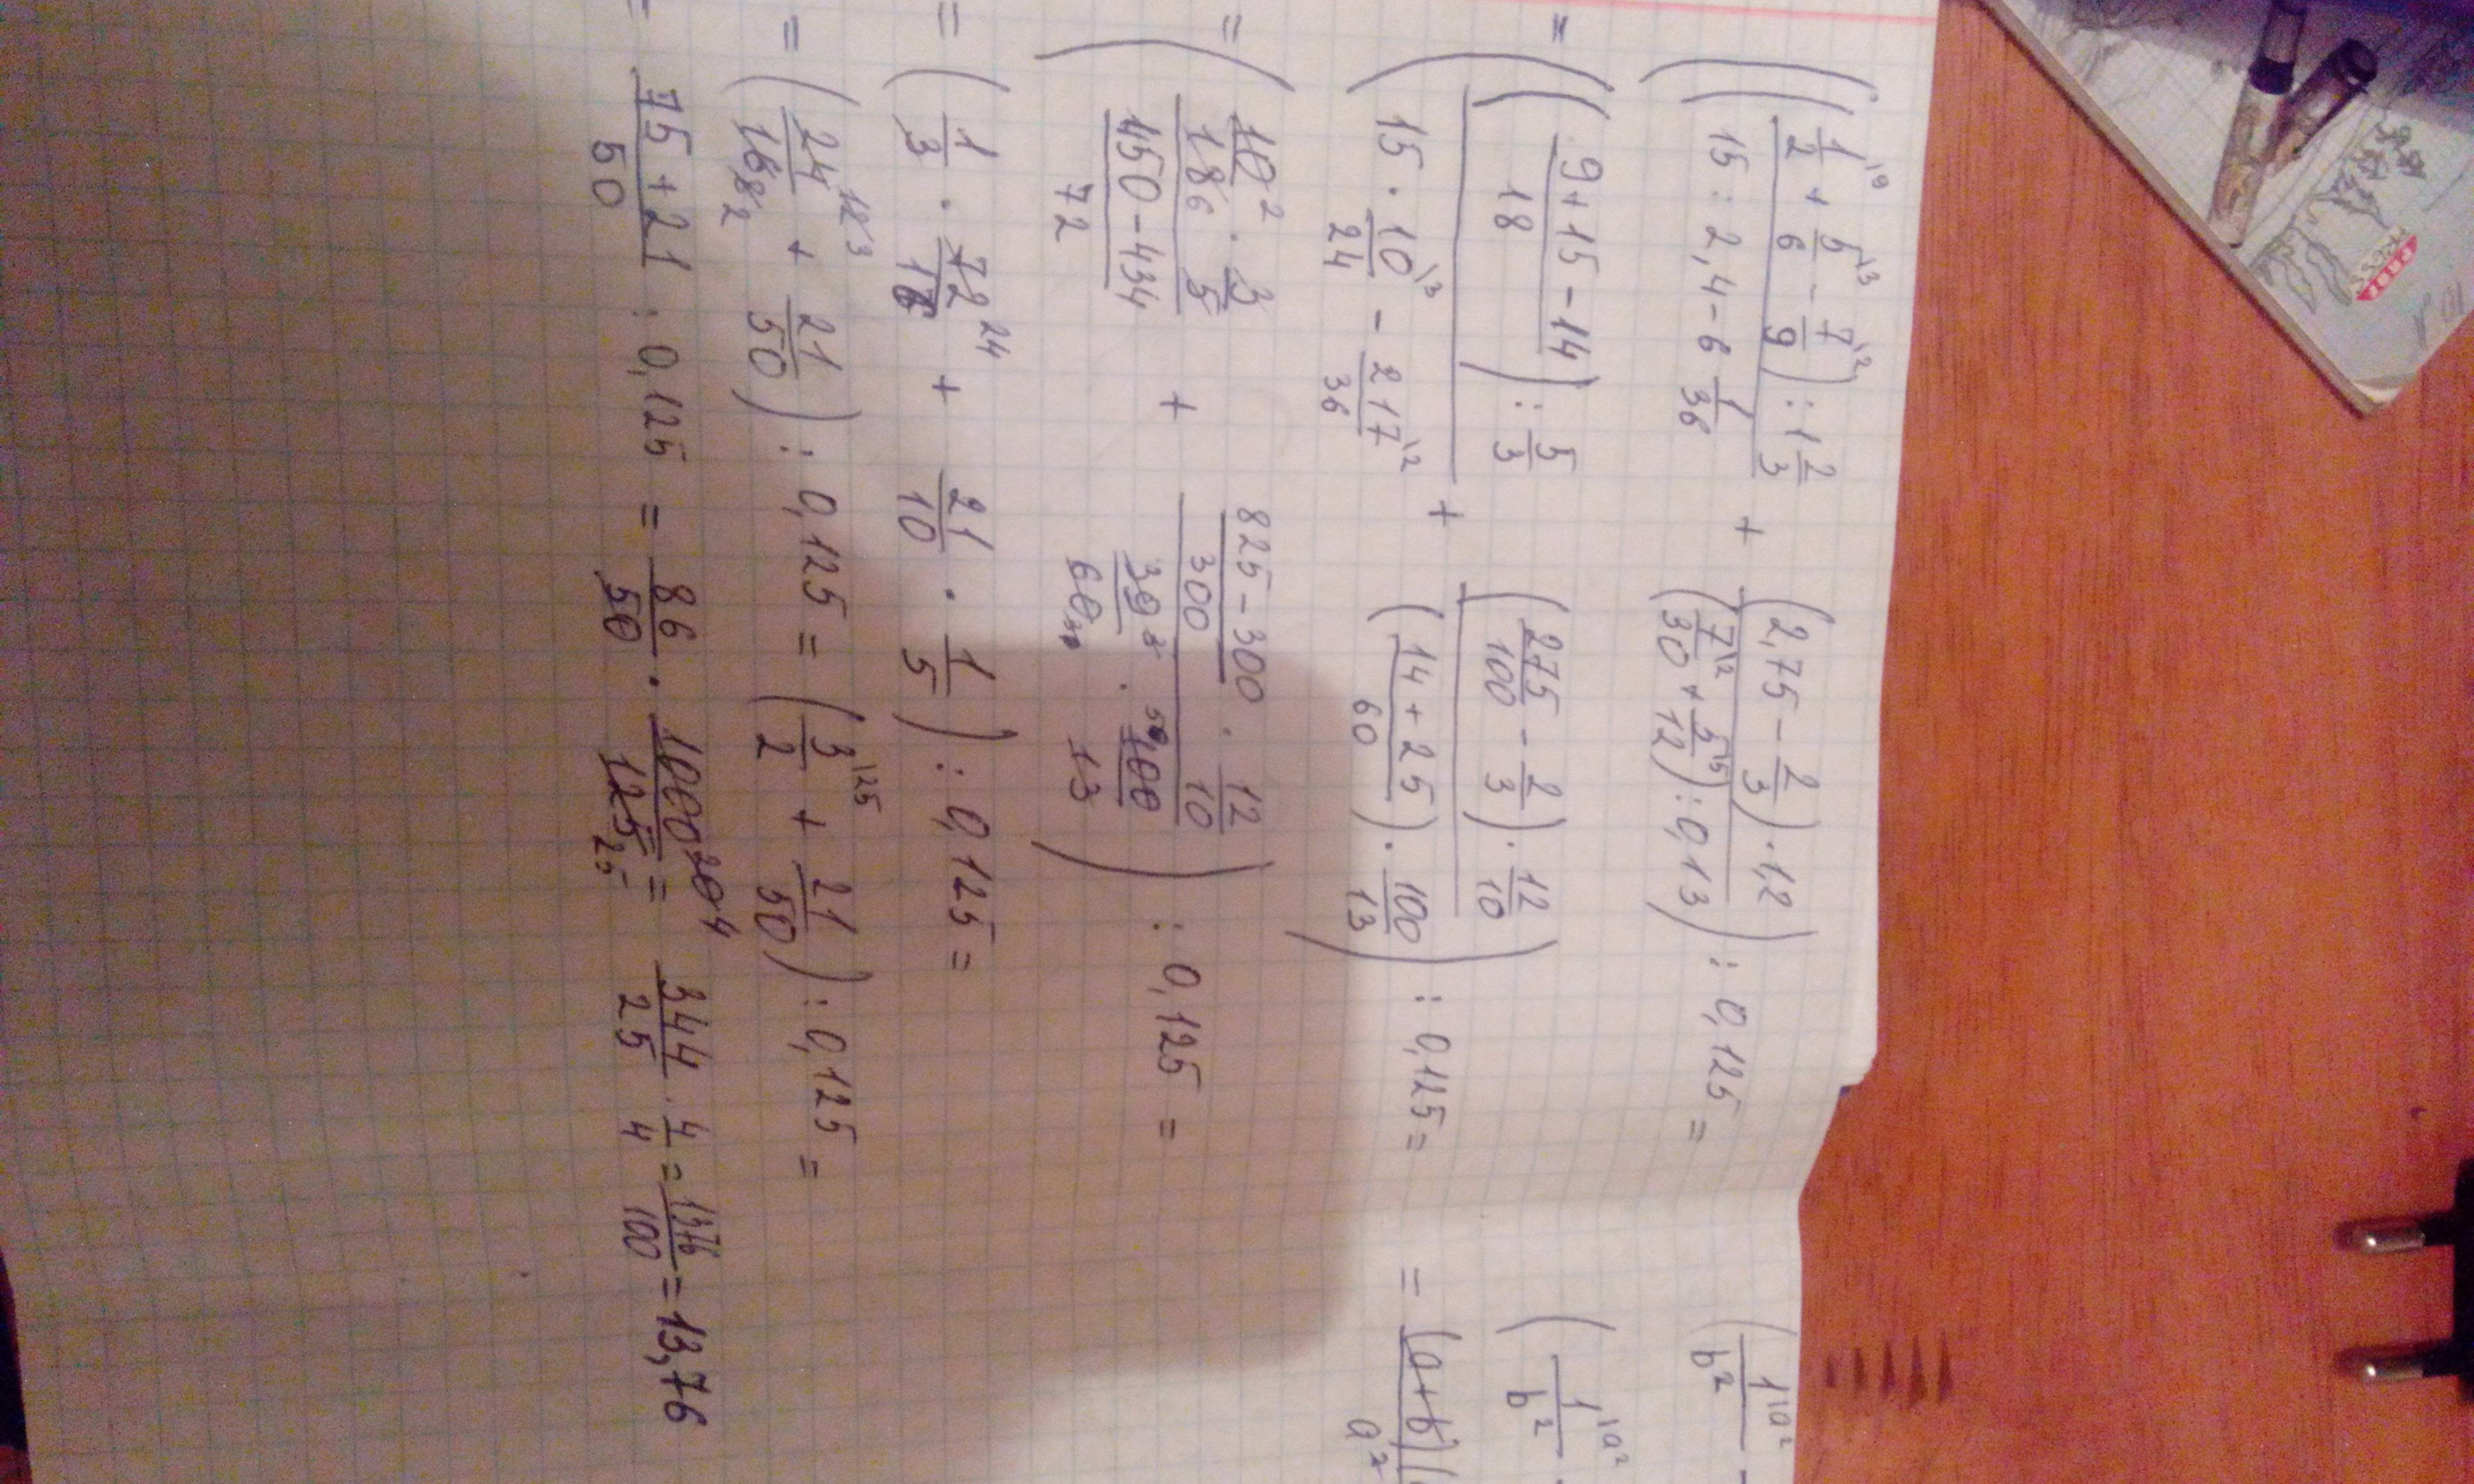 ((1/2\9 + 5/6\3 - 7/9\2) : 1 2/3 / 15 : 2,4 - 6 1/36 + (2,75 - 2/3) · 1,2 / (7/30\2 + 5/12\5) : 0,13) : 0,125 =
= (((9+15-14)/18) : 5/3 / 15 · 10/24\3 - 217/36\2 + (275/100 - 2/3) · 12/10 / ((14+25)/60) · 100/13) : 0,125 =
= (10 2/18 6 · 3/5 / (450-434)/72 + (825-300)/300 · 12/10 / 39 3/60 · 100/13) : 0,125 =
= (1/3 · 72 24/16 + 21/10 · 1/5) : 0,125 =
= (24 12 3/16 8 2 + 21/50) : 0,125 = (3/2\25 + 21/50) : 0,125 =
= (75+21)/50 : 0,125 = 86/50 · 1000 20 4/125 25 = 344/25 · 4/4 = 1376/100 = 13,76
(1\a²/b² -
(1\a²/b²
= (a+b)(/a²
PROGRESS